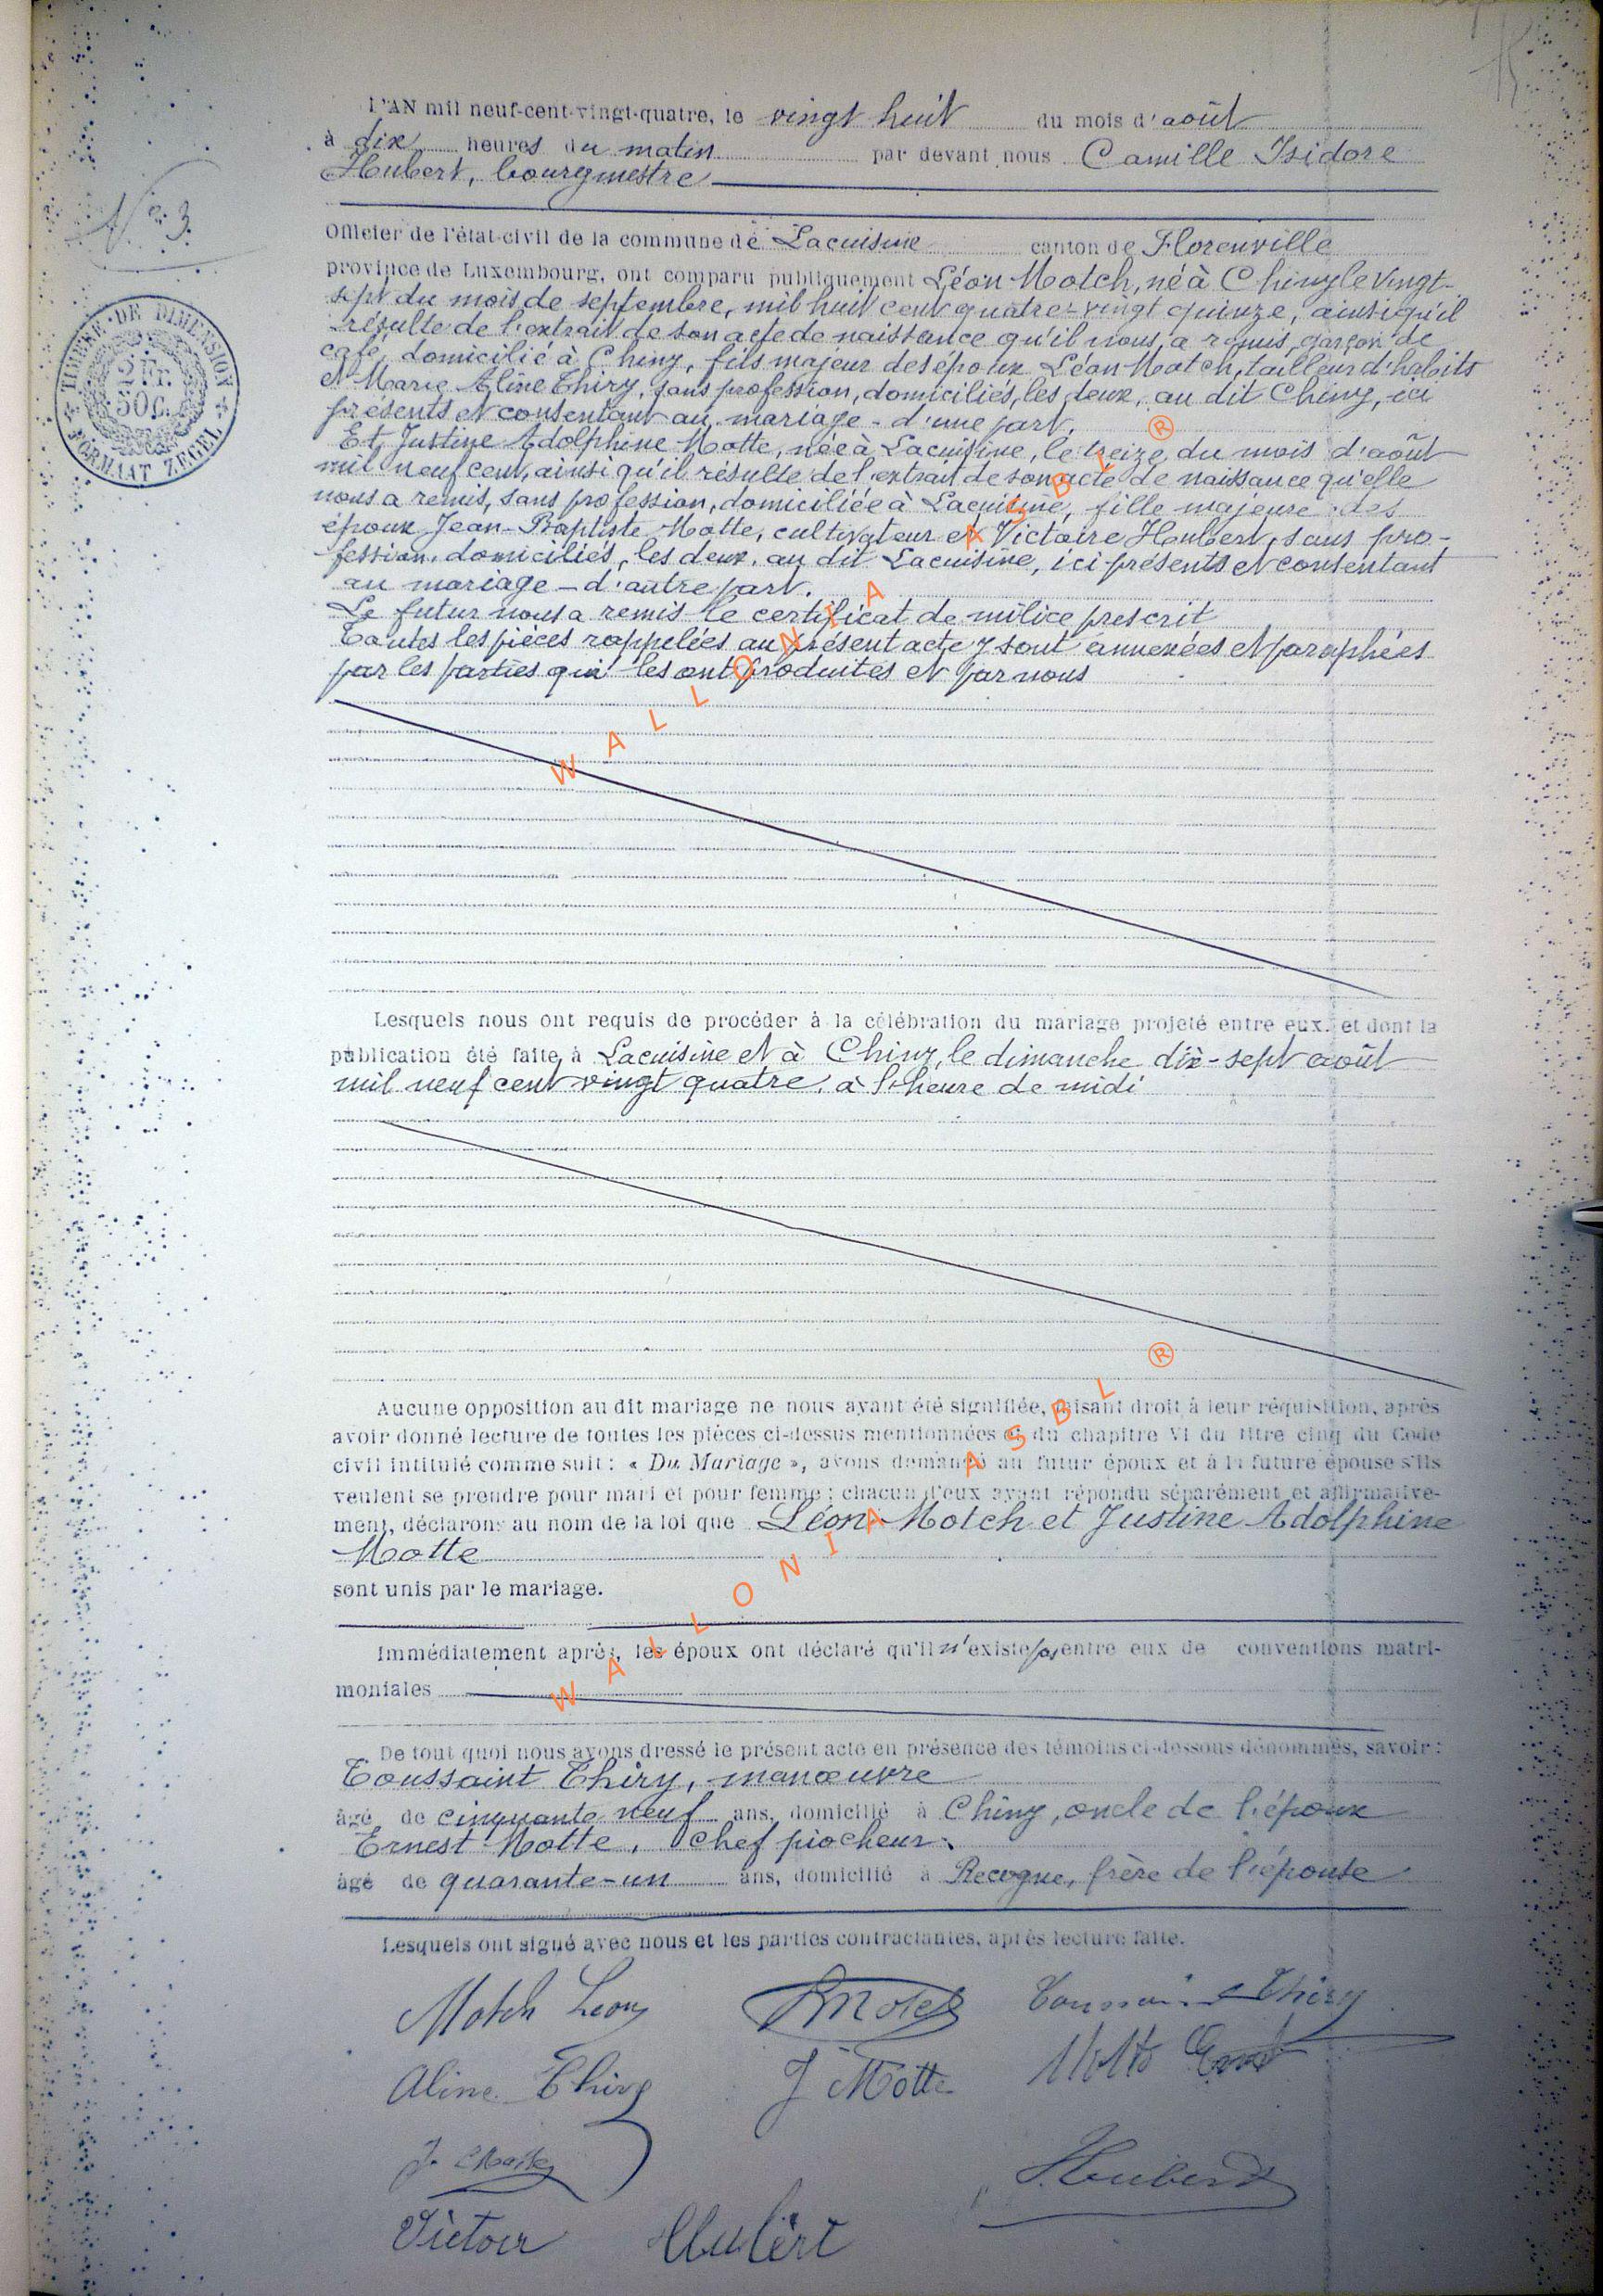 N° 3
TIMBRE DE DIMENSION
2 Fr.
50 C.
FORMAAT ZEGEL
L'AN mil neuf-cent-vingt-quatre, le vingt huit du mois d'août
à dix heures du matin par devant nous Camille Isidore
Hubert, bourgmestre
Officier de l'état-civil de la commune de Lacuisine canton de Florenville
province de Luxembourg, ont comparu publiquement Léon Motch, né à Chiny le vingt-
sept du mois de septembre, mil huit cent quatre-vingt quinze, ainsi qu'il
résulte de l'extrait de son acte de naissance qu'il nous a remis, garçon de
café, domicilié à Chiny, fils majeur des époux Léon Motch, tailleur d'habits
et Marie Aline Thiry, sans profession, domiciliés, les deux, au dit Chiny, ici
présents et consentant au mariage - d'une part.
Et, Justine Adolphine Motte, née à Lacuisine, le seize du mois d'août
mil neuf cent, ainsi qu'il résulte de l'extrait de son acte de naissance qu'elle
nous a remis, sans profession, domiciliée à Lacuisine, fille majeure des
époux Jean-Baptiste Motte, cultivateur et Victoire Hubert, sans pro-
fession, domiciliés, les deux, au dit Lacuisine, ici présents et consentant
au mariage - d'autre part.
Le futur nous a remis le certificat de milice prescrit
Toutes les pièces rappelées au présent acte y sont annexées et paraphées
par les parties qui les ont produites et par nous
WALLONIA ASBL ®
Lesquels nous ont requis de procéder à la célébration du mariage projeté entre eux, et dont la
publication été faite à Lacuisine et à Chiny, le dimanche dix-sept août
mil neuf cent vingt quatre, à l'heure de midi
Aucune opposition au dit mariage ne nous ayant été signifiée, faisant droit à leur réquisition, après
avoir donné lecture de toutes les pièces ci-dessus mentionnées et du chapitre VI du titre cinq du Code
civil intitulé comme suit : « Du Mariage », avons demandé au futur époux et à la future épouse s'ils
veulent se prendre pour mari et pour femme ; chacun d'eux ayant répondu séparément et affirmative-
ment, déclarons au nom de la loi que Léon Motch et Justine Adolphine
Motte
sont unis par le mariage.
WALLONIA ASBL ®
Immédiatement après, les époux ont déclaré qu'il n'existe pas entre eux de conventions matri-
moniales
De tout quoi nous avons dressé le présent acte en présence des témoins ci-dessous dénommés, savoir :
Toussaint Thiry, manœuvre
âgé de cinquante neuf ans, domicilié à Chiny, oncle de l'époux
Ernest Motte, chef piocheur
âgé de quarante-un ans, domicilié à Recogne, frère de l'épouse
Lesquels ont signé avec nous et les parties contractantes, après lecture faite.
Motch Léon Toussaint Thiry
Aline Thiry J Motte Motte Ernest
Hubert
Victoir Hubert